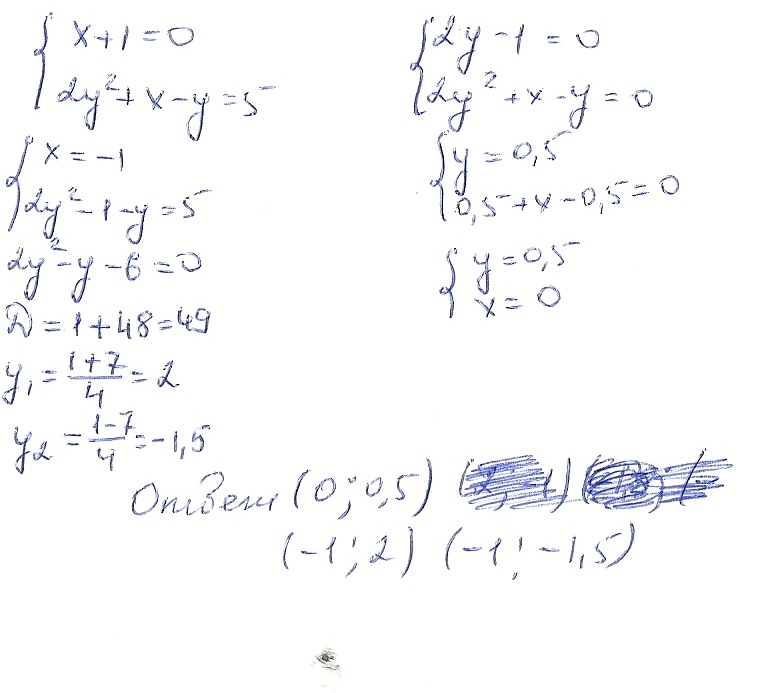 x+1=0
2y²+x-y=5
x=-1
2y²-1-y=5
2y²-y-6=0
D=1+48=49
y₁=(1+7)/4=2
y₂=(1-7)/4=-1,5
2y-1=0
2y²+x-y=0
y=0,5
0,5+x-0,5=0
y=0,5
x=0
Ответ (0;0,5)
(-1;2) (-1;-1,5)